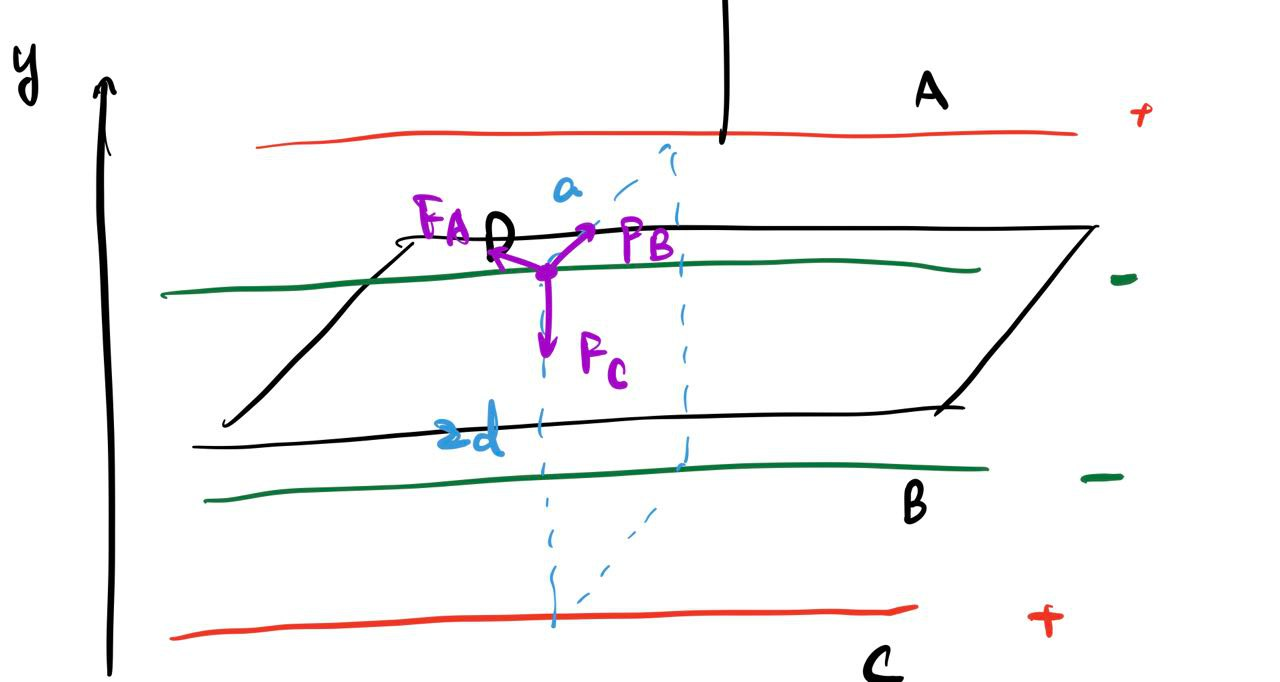 y
A
+
a
F_A
D
F_B
-
F_C
2d
-
B
+
C